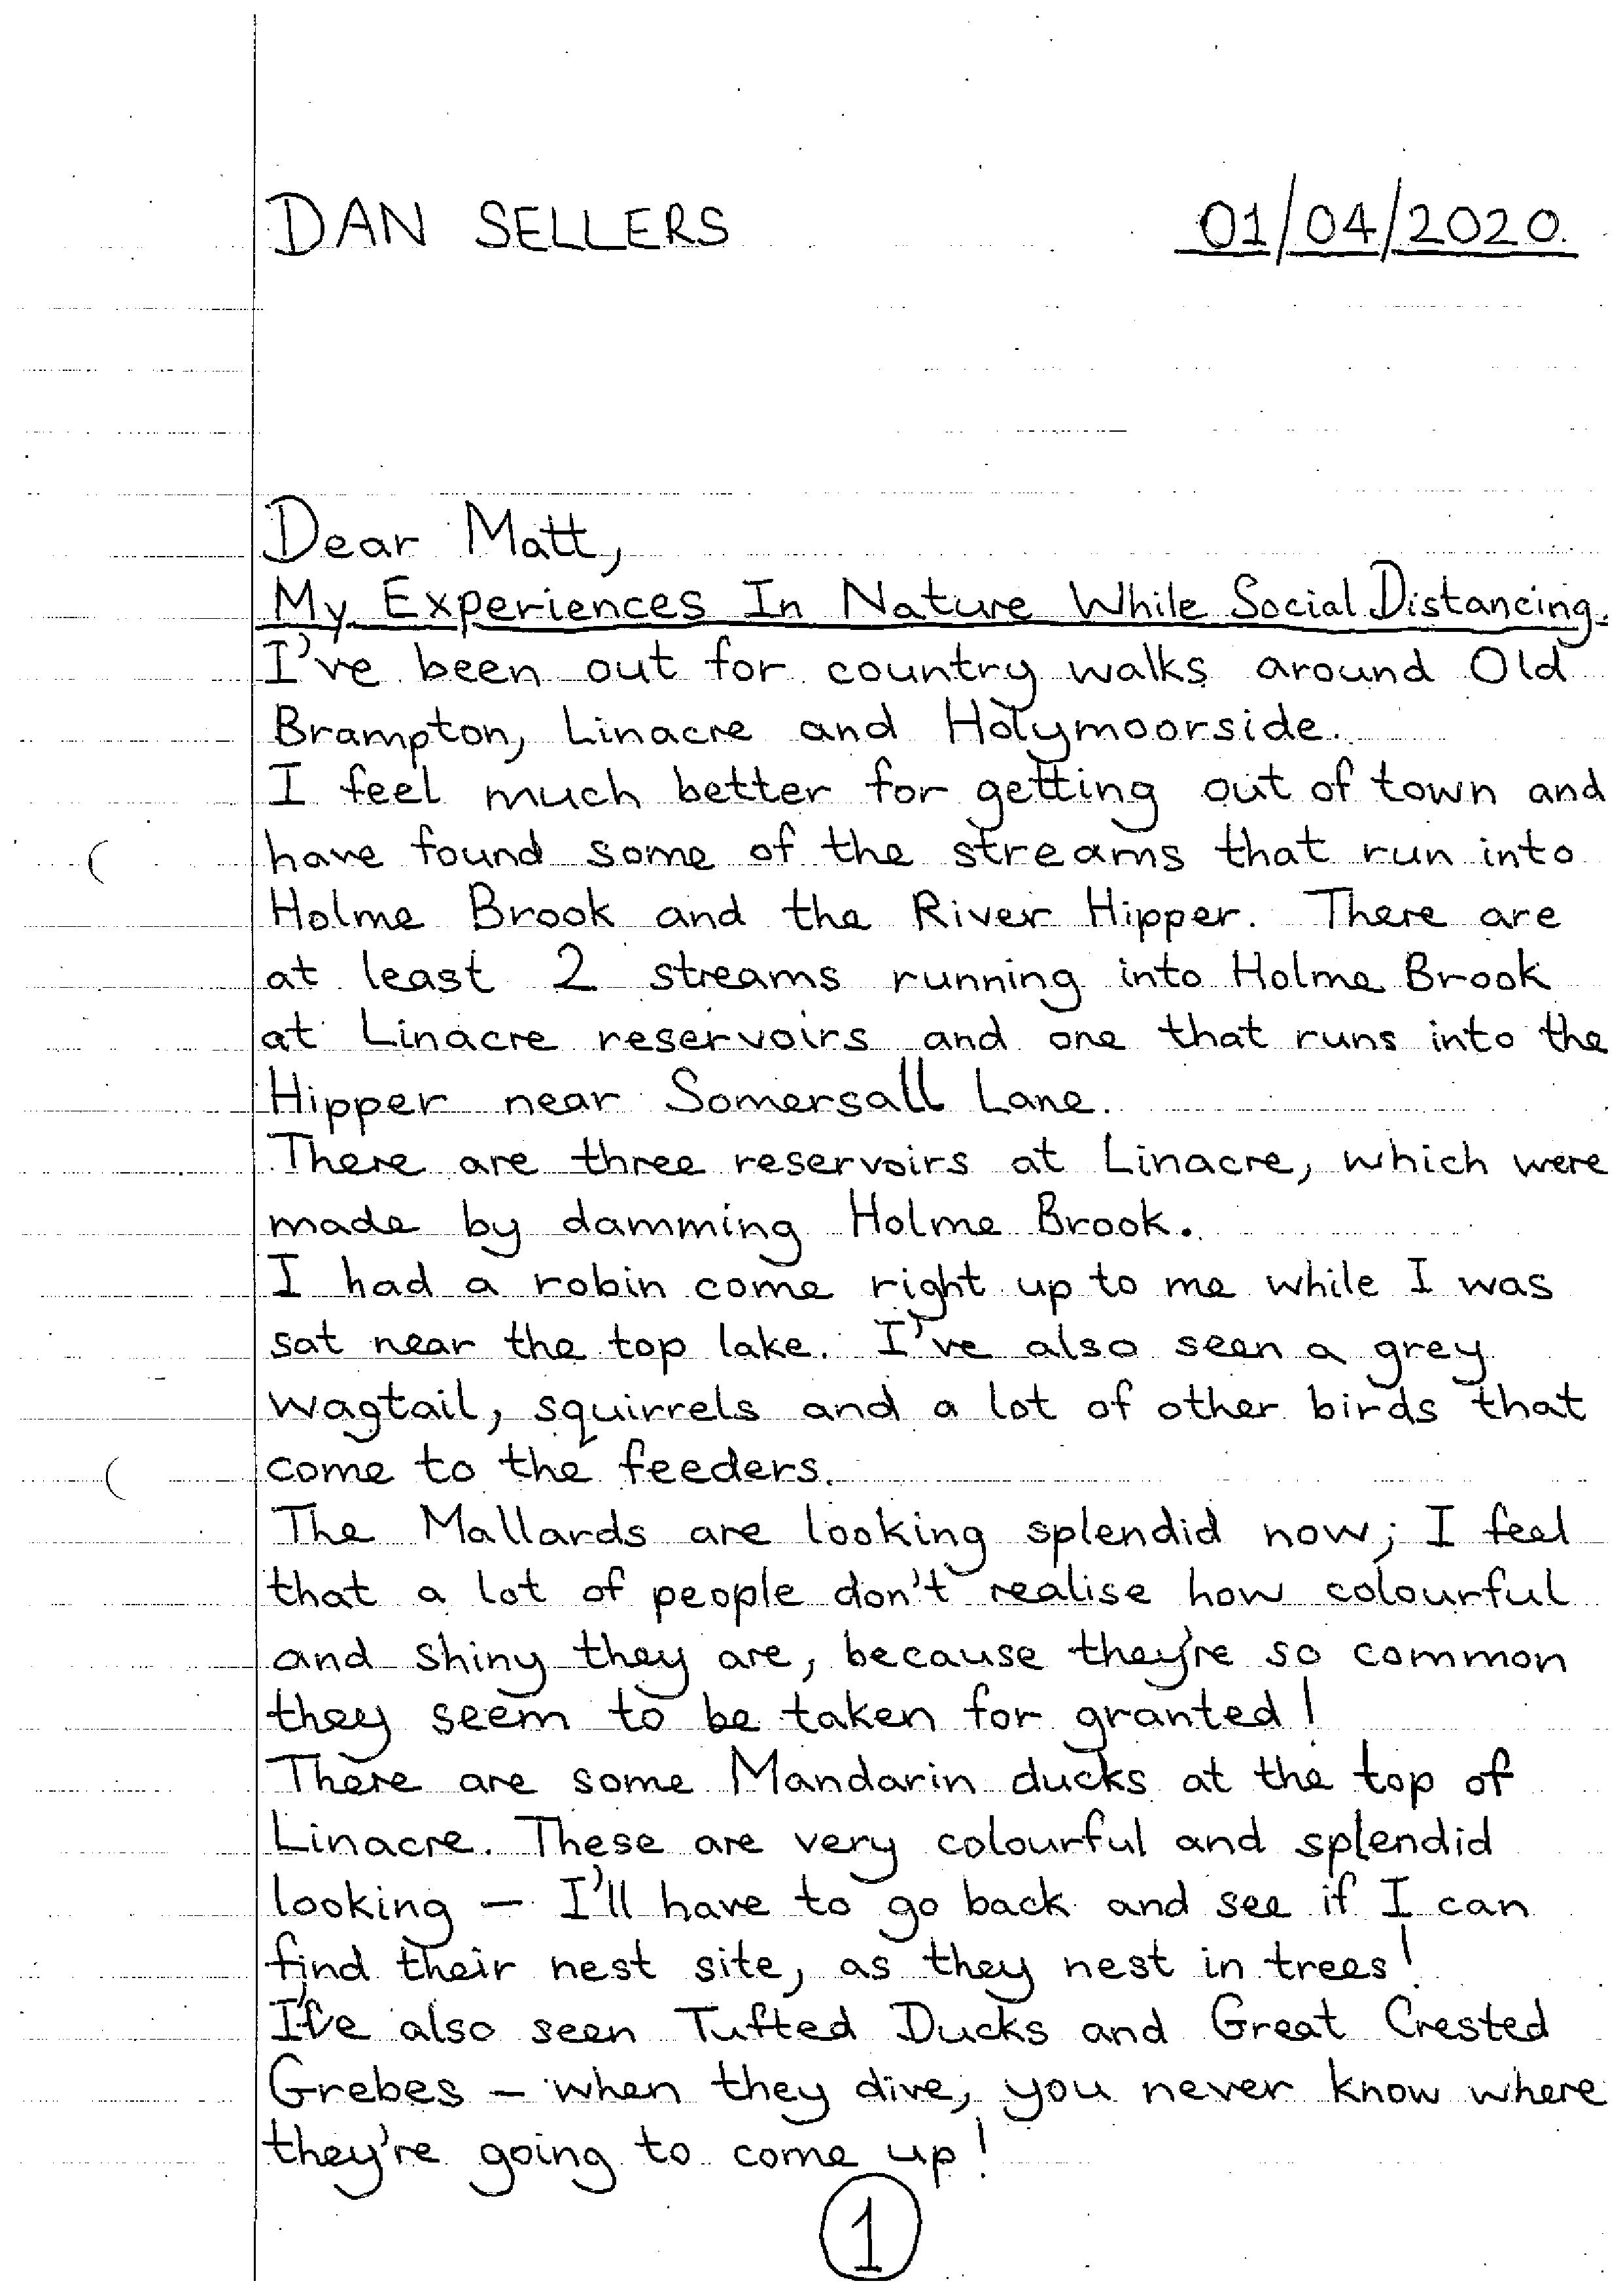 DAN SELLERS 01/04/2020.
Dear Matt,
My Experiences In Nature While Social Distancing.
I've been out for country walks around Old
Brampton, Linacre and Holymoorside.
I feel much better for getting out of town and
have found some of the streams that run into
Holme Brook and the River Hipper. There are
at least 2 streams running into Holme Brook
at Linacre reservoirs and one that runs into the
Hipper near Somersall Lane.
There are three reservoirs at Linacre, which were
made by damming Holme Brook.
I had a robin come right up to me while I was
sat near the top lake. I've also seen a grey
wagtail, squirrels and a lot of other birds that
come to the feeders.
The Mallards are looking splendid now; I feel
that a lot of people don't realise how colourful
and shiny they are, because they're so common
they seem to be taken for granted!
There are some Mandarin ducks at the top of
Linacre. These are very colourful and splendid
looking – I'll have to go back and see if I can
find their nest site, as they nest in trees!
I've also seen Tufted Ducks and Great Crested
Grebes – when they dive, you never know where
they're going to come up!
1